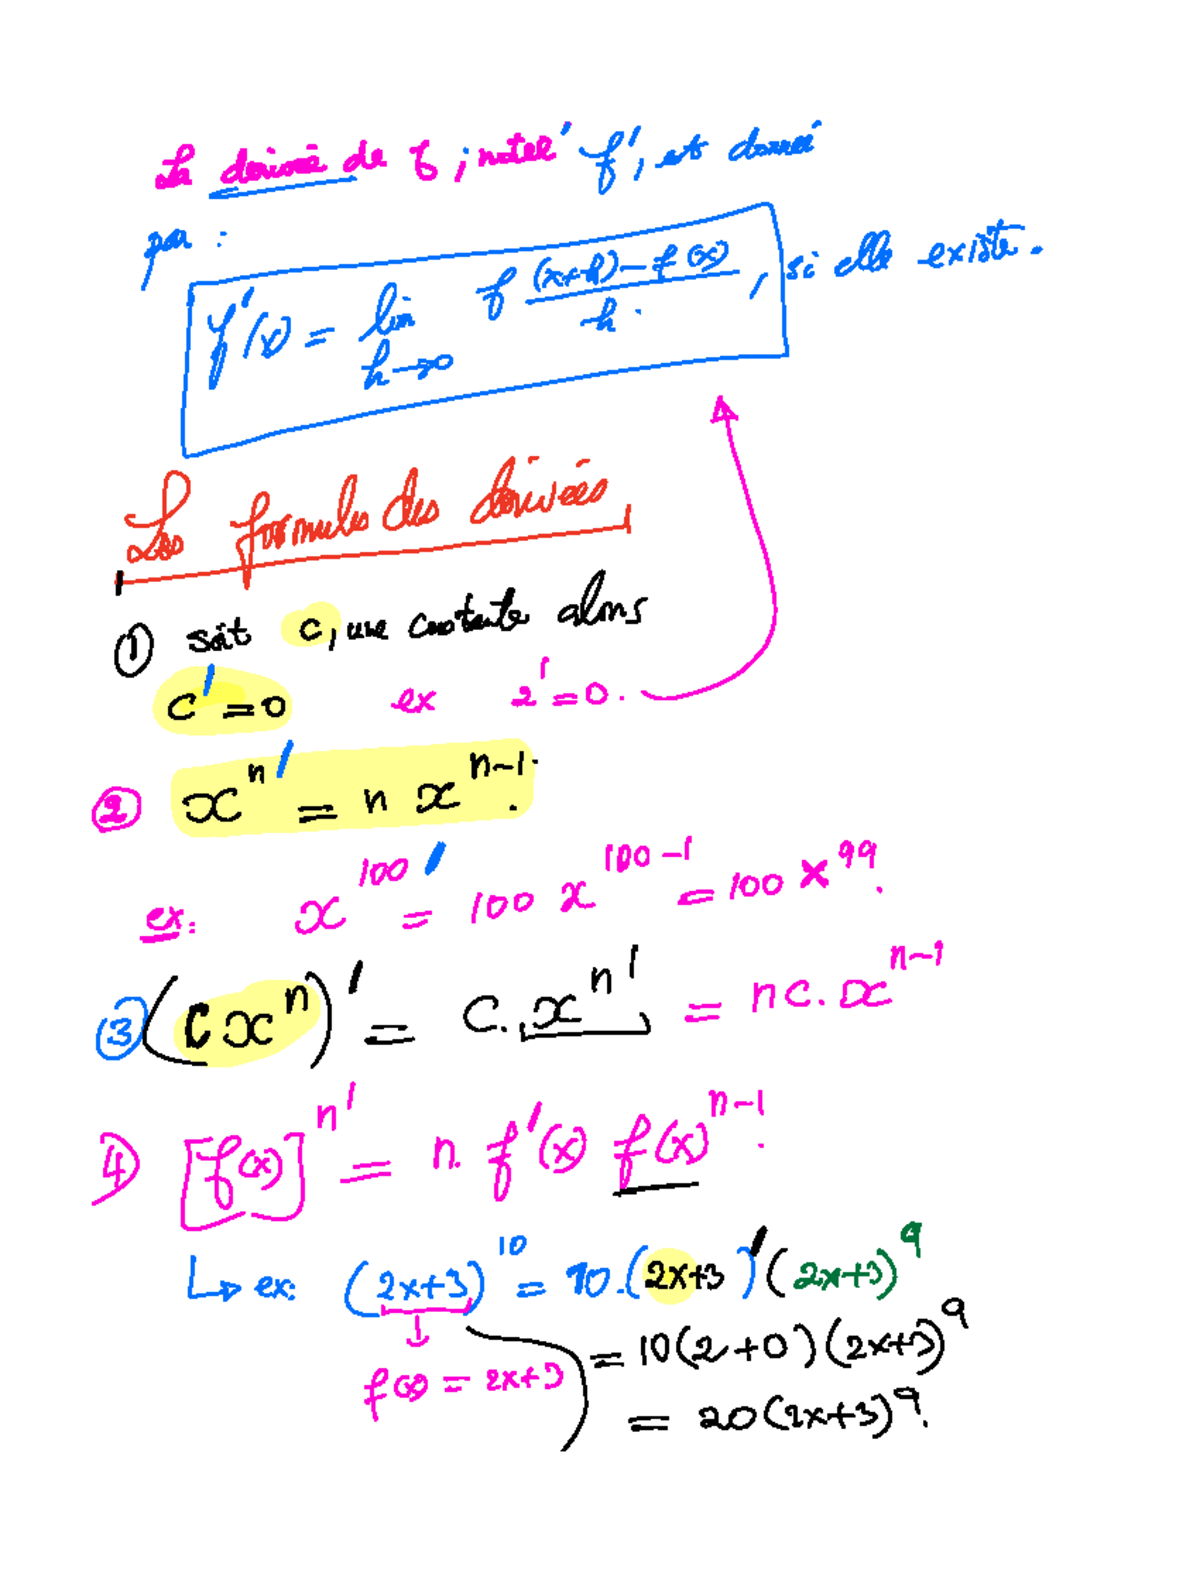 La dérivée de f, notée f', est donnée
par :
f'(x) = lim h→0 f(x+h) - f(x) / h , si elle existe.
Les formules des dérivées
① soit c, une constante alors
c' = 0 ex 2' = 0.
② x^n' = n x^{n-1}.
ex: x^{100}' = 100 x^{100-1} = 100 x^{99}.
③ (c x^n)' = C. x^n' = n c. x^{n-1}
4) [f(x)]^n' = n. f'(x) f(x)^{n-1}.
↳ ex: (2x+3)^{10} = 10.(2x+3)' (2x+3)^9
f(x) = 2x+3
= 10(2+0)(2x+3)^9
= 20(2x+3)^9.